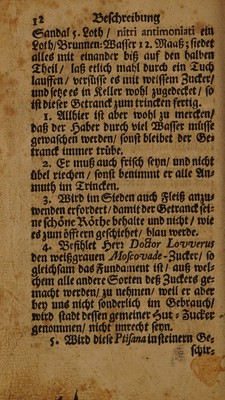 12 Beschreibung
Sandal 5. Loth / nitri antimoniati ein
Loth / Brunnen-Wasser 12. Mauß; siedet
alles mit einander biß auf den halben
Theil / laß etlich mahl durch ein Tuch
lauffen / versüsse es mit weissem Zucker /
und setze es in Keller wohl zugedecket / so
ist dieser Getranck zum trincken fertig.
1. Allhier ist aber wohl zu mercken /
daß der Haber durch viel Wasser müsse
gewaschen werden / sonst bleibet der Ge-
tranck immer trübe.
2. Er muß auch frisch seyn / und nicht
übel riechen / sonst benimmt er alle An-
muth im Trincken.
3. Wird im Sieden auch Fleiß anzu-
wenden erfordert / damit der Getranck sei-
ne schöne Röthe behalte und nicht / wie
es zum öfftern geschiehet / blau werde.
4. Befihlet Herr Doctor Lovverus
den weißgrauen Moscovade-Zucker / so
gleichsam das Fundament ist / auß wel-
chem alle andere Sorten deß Zuckers ge-
macht werden / zu nehmen / weil er aber
bey uns nicht sonderlich im Gebrauch /
wird stadt dessen gemeiner Hut-Zucker
genommen / nicht unrecht seyn.
5. Wird diese Ptisana in steinern Ge-
schir-